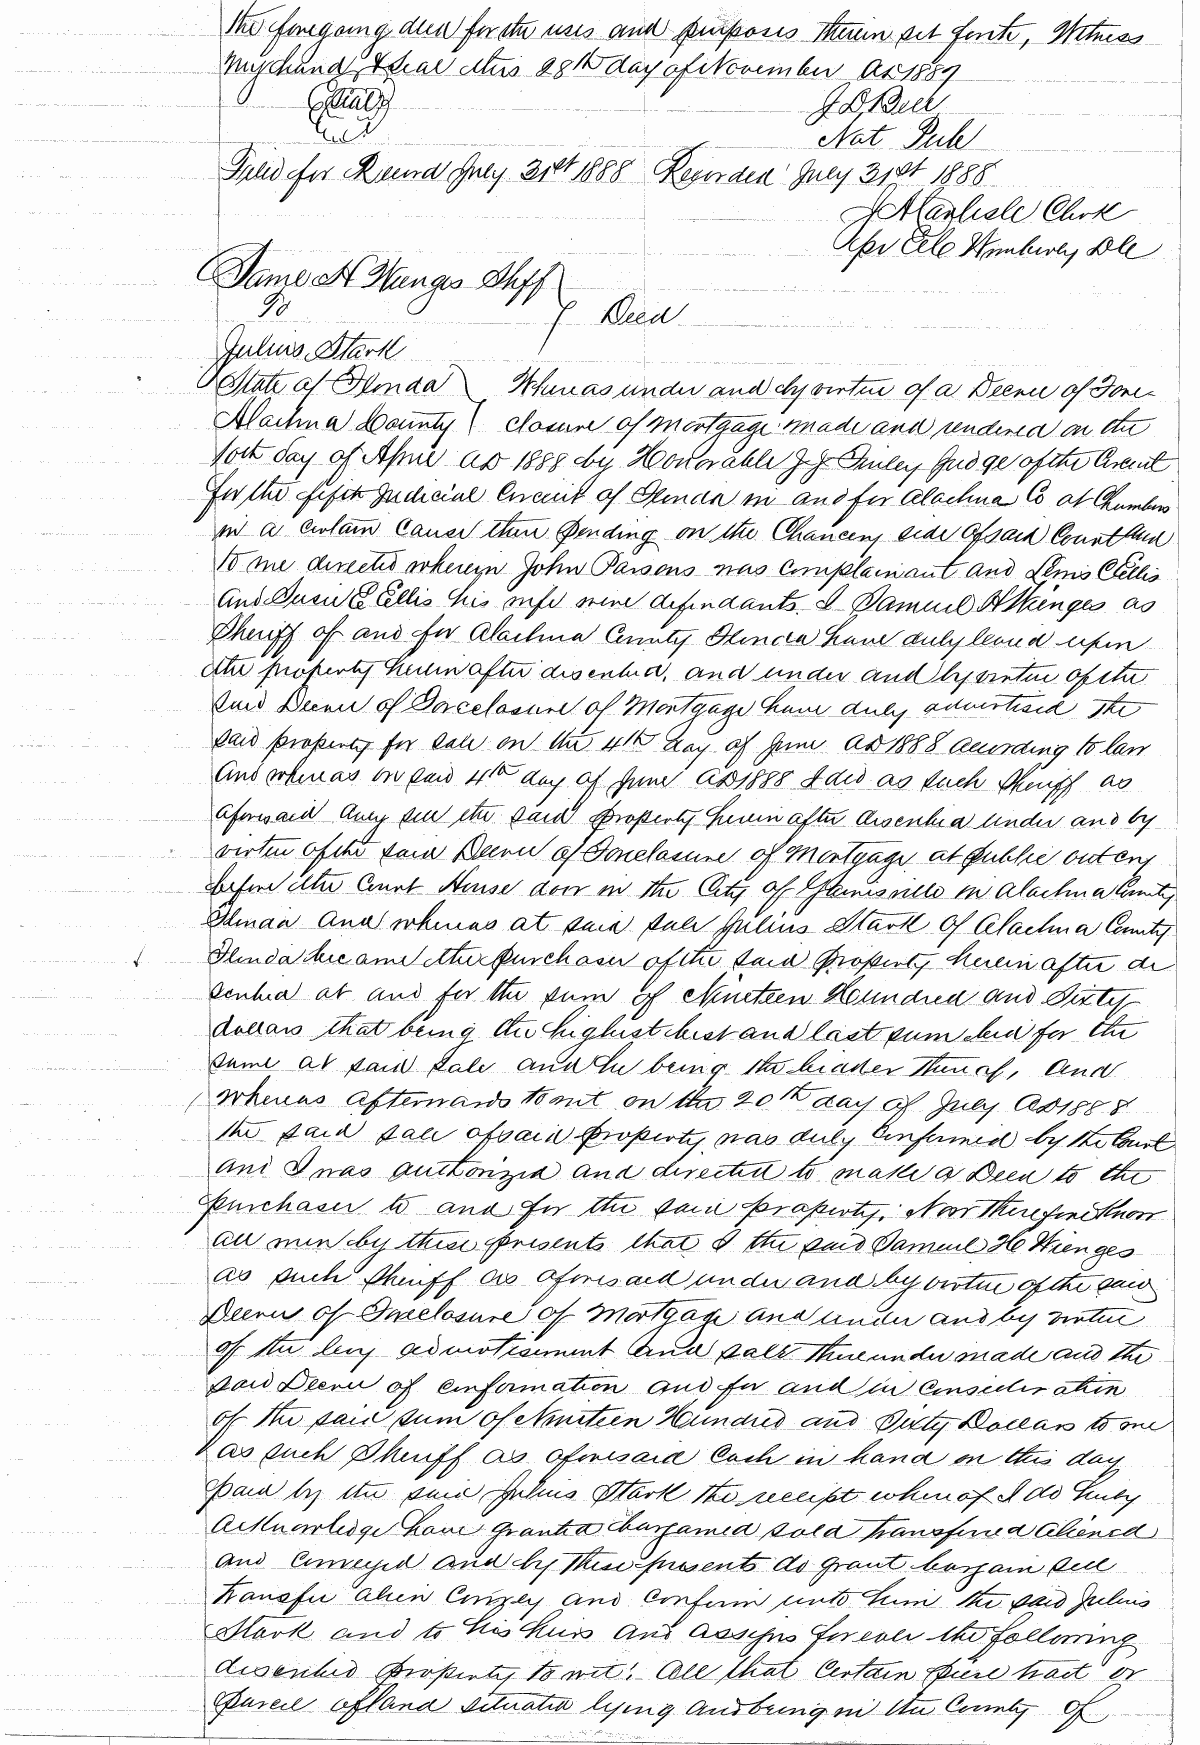 the foregoing deed for the uses and purposes therein set forth, Witness
my hand & seal this 28th day of November AD 1889
(Seal)
J D Bell
Nat Pub
Filed for Record July 31st 1888 Recorded July 31st 1888
J A Carlisle Clerk
Wimberley DC
Same H Wienges Shff
To
Deed
Julius Stark
State of Florida Whereas under and by virtue of a Decree of Fore-
Alachua County closure of Mortgage made and rendered on the
10th day of April AD 1888 by Honorable J J Finley Judge of the Circuit
for the fifth Judicial Circuit of Florida in and for Alachua Co at Chambers
in a certain cause then pending on the Chancery side of said Court And
to me directed wherein John Parsons was complainant and Lewis C Ellis
and Susie E Ellis his wife were defendants. I Samuel H Wienges as
Sheriff of and for Alachua County Florida have duly levied upon
the property herein after described, and under and by virtue of the
said Decree of Foreclosure of Mortgage have duly advertised the
said property for sale on the 4th day of June AD 1888 according to law
And whereas on said 4th day of June AD 1888 I did as such Sheriff as
aforesaid duly sell the said property herein after described under and by
virtue of the said Decree of Foreclosure of Mortgage at public outcry
before the Court House door in the City of Gainesville in Alachua County
Florida And whereas at said sale Julius Stark of Alachua County
Florida became the purchaser of the said property herein after de
scribed at and for the sum of Nineteen Hundred and Sixty
dollars that being the highest best and last sum bid for the
same at said sale and he being the bidder thereof, And
whereas afterwards to wit on the 20th day of July AD 1888
the said sale of said property was duly confirmed by the Court
and I was authorized and directed to make a Deed to the
purchaser to and for the said property. Now Therefore Know
all men by these presents that I the said Samuel H Wienges
as such Sheriff as aforesaid under and by virtue of the said
Decree of Foreclosure of Mortgage and under and by virtue
of the levy advertisement and sale thereunder made and the
said Decree of confirmation and for and in consideration
of the said sum of Nineteen Hundred and Sixty Dollars to me
as such Sheriff as aforesaid Cash in hand on this day
paid by the said Julius Stark the receipt whereof I do hereby
acknowledge have granted bargained sold transferred aliened
and conveyed and by these presents do grant bargain sell
transfer alien convey and confirm unto him the said Julius
Stark and to his heirs and assigns forever the following
described property to wit: All that certain piece tract or
parcel of land situated lying and being in the County of